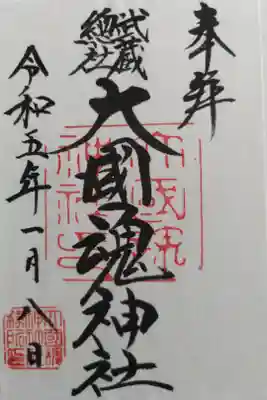 奉拝
武蔵
総社
大國魂神社
令和五年一月八日